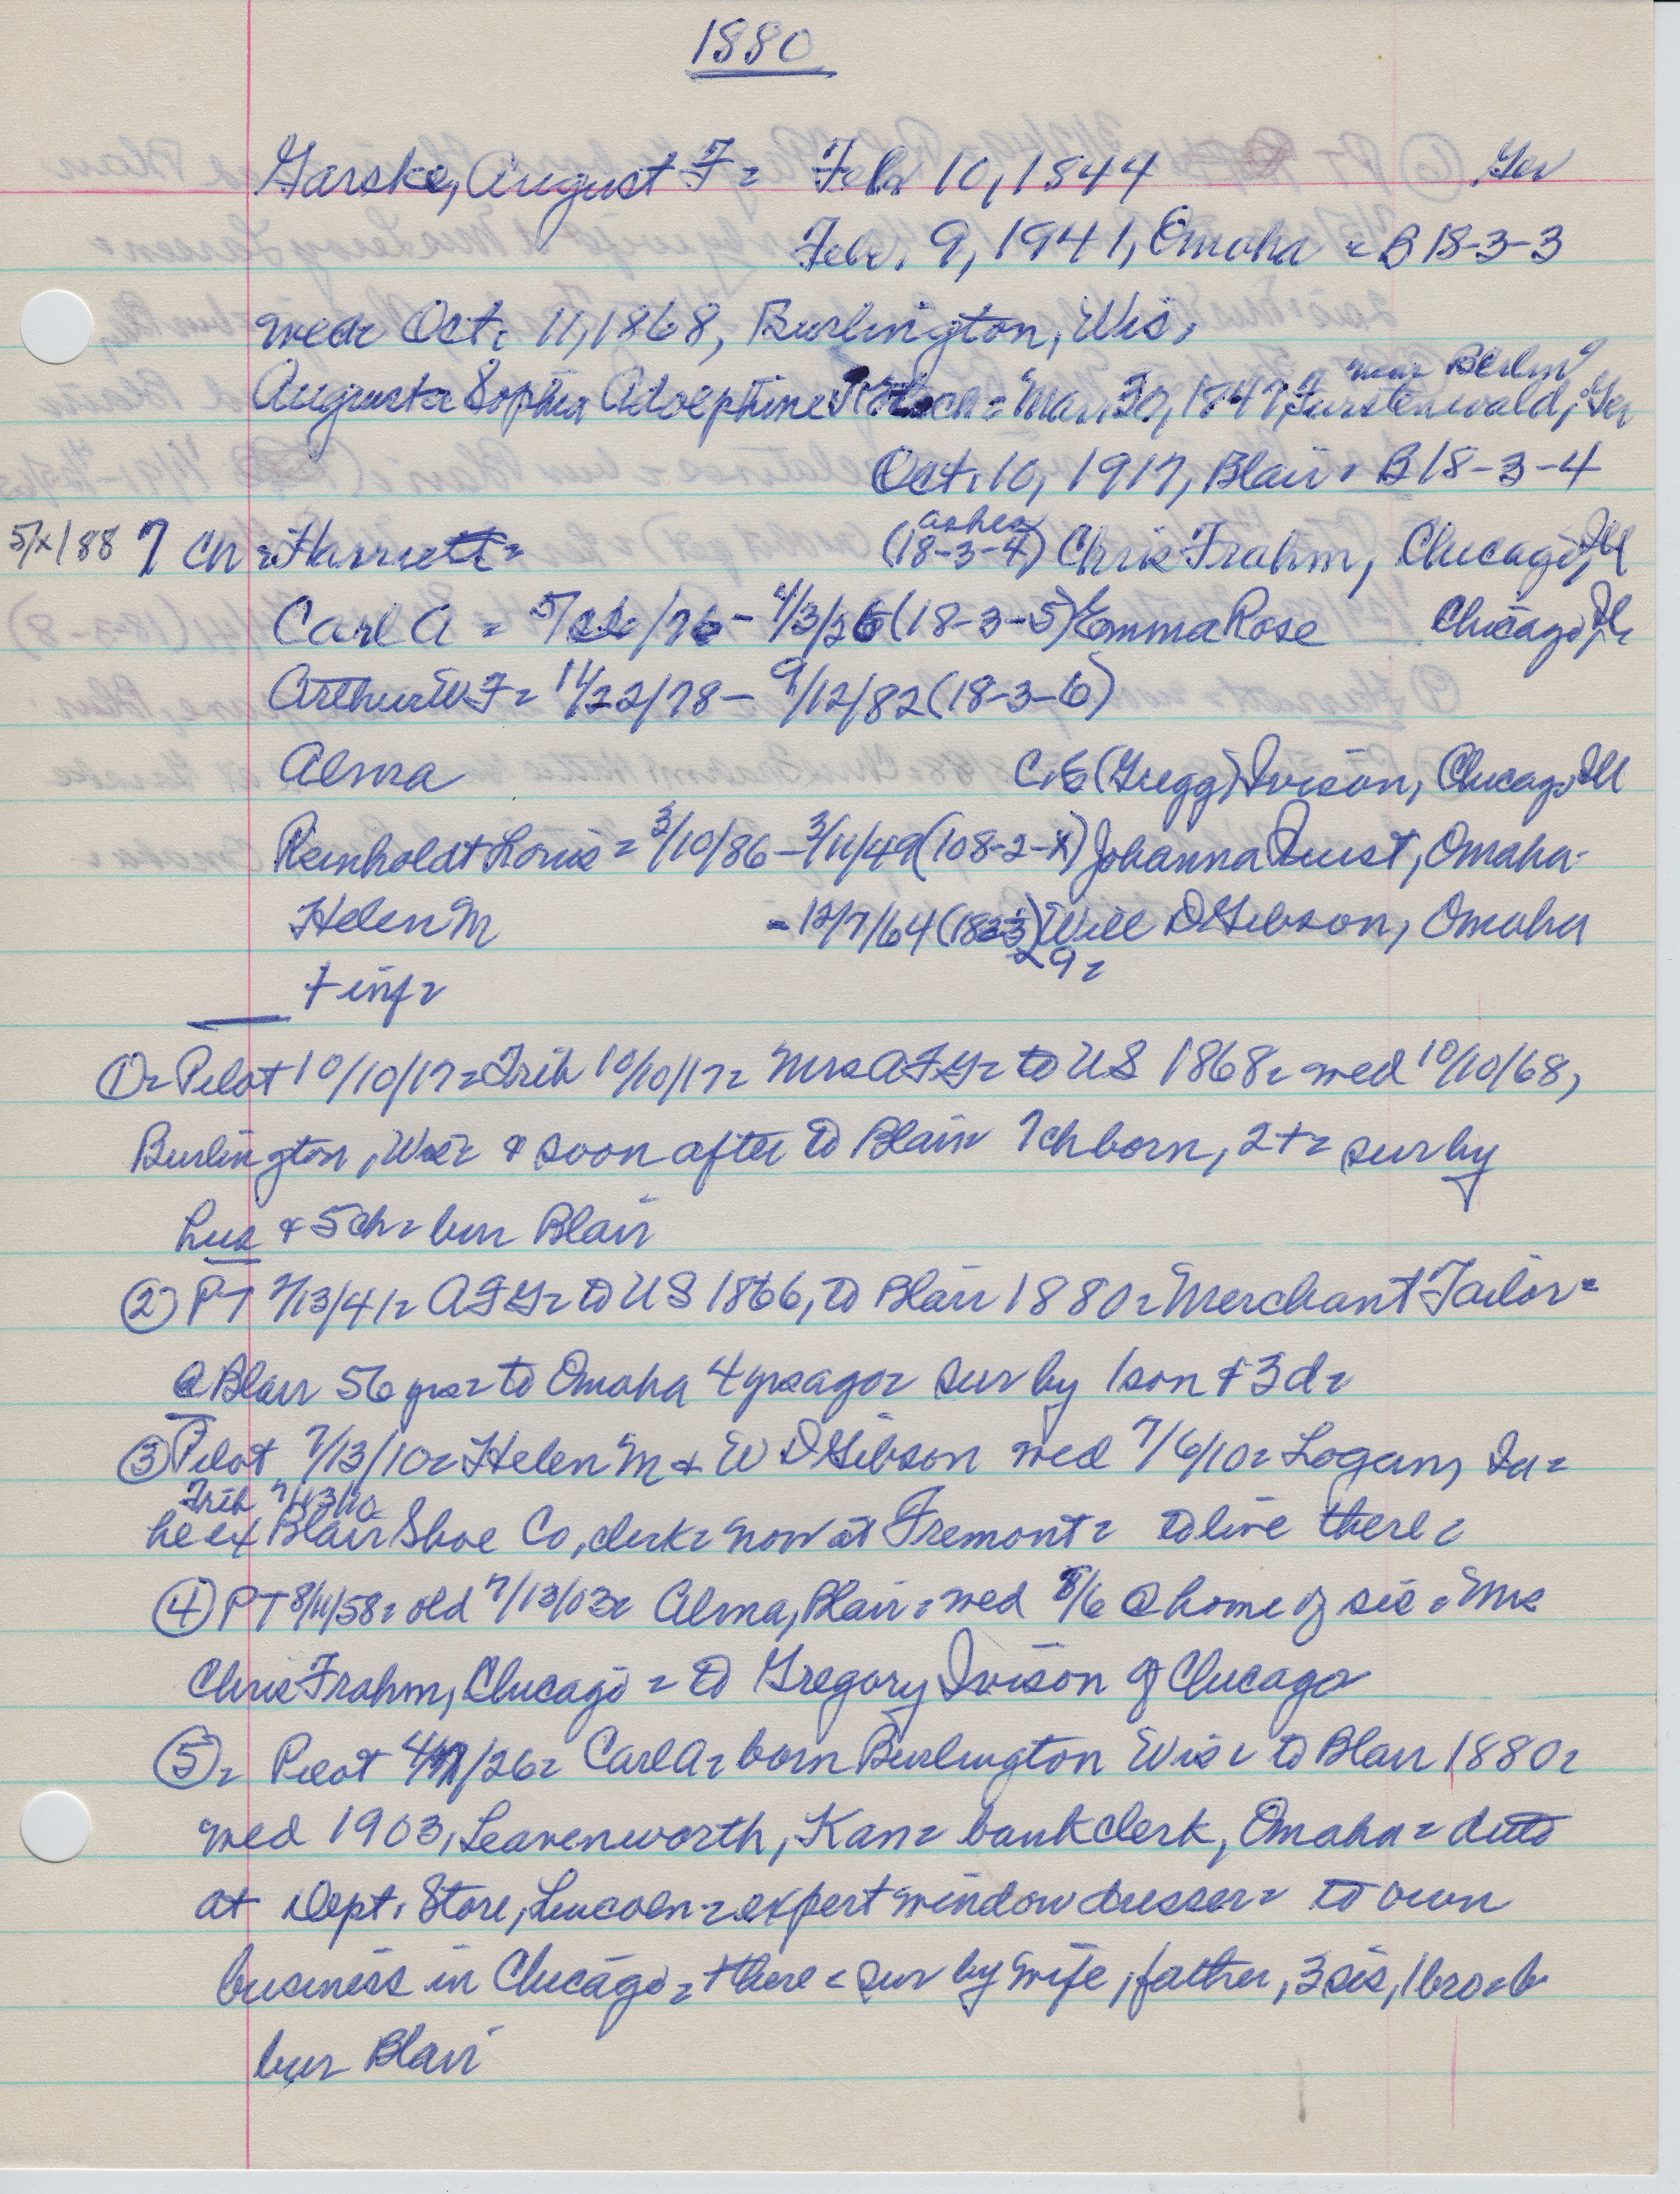 1880
Garske, August F = Feb. 10, 1844 Ger
Feb. 9, 1941, Omaha = B 18-3-3
wed Oct. 11, 1868, Burlington, Wis.
near Berlin
Augusta Sophia Adolphine = Mar. 30, 1847, Furstenwald, Ger
Oct. 10, 1917, Blair = B 18-3-4
ashes
5/x/88 7 ch = Harriett = (18-3-4) Chris Frahm, Chicago, Ill
Carl A = /76 - 4/3/26 (18-3-5) Emma Rose Chicago, Ill
Arthur W F = 11/22/78 - 9/12/82 (18-3-6)
Alma C E (Gregg) Ivison, Chicago, Ill
Reinholdt Louis = 3/10/86 - 3/11/49 (108-2-x) Johanna Quist, Omaha
Helen M - 12/7/64 Will D Gibson, Omaha
+ inf =
① = Pilot 10/10/17 = Trib 10/10/17 = Mrs A F G = to US 1868 = wed 10/10/68,
Burlington, Wis = & soon after to Blair 7 ch born, 2+ = sur by
hus & 5 ch = bur Blair
② PT 2/13/41 = A F G = to US 1866, to Blair 1880 = Merchant Tailor =
@ Blair 56 yrs = to Omaha 4 yrs ago = sur by 1 son & 3 d =
③ Pilot 7/13/10 = Helen M & W D Gibson wed 7/6/10 = Logan, Ia =
Trib 7/13/10
he ex Blair Shoe Co, clerk = now at Fremont = to live there =
④ PT 8/11/58 = old 7/13/03 = Alma, Blair = wed 8/6 @ home of sis = Mrs
Chris Frahm, Chicago = to Gregory Ivison of Chicago
⑤ = Pilot /26 = Carl A = born Burlington Wis = to Blair 1880 =
wed 1903, Leavenworth, Kan = bank clerk, Omaha = ditto
at Dept. Store, Lincoln = expert window dresser = to own
business in Chicago = + there = sur by wife, father, 3 sis, 1 bro =
bur Blair